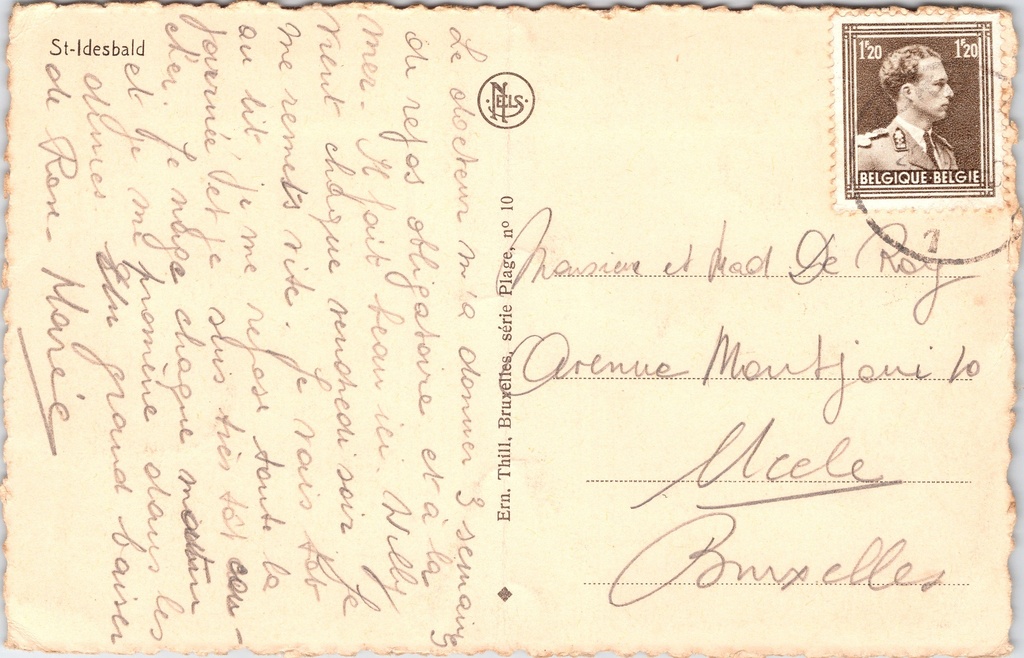 St-Idesbald
Le docteur m'a donner 3 semaines
de repos obligatoire et à la
mer. Il fait beau ici. Willy
vient chaque vendredi soir Je
me remets vite. Je vais tot
au lit je me repose toute la
journée et je suis très tot cou-
cher. Je nage chaque matin
et je me promène dans les
dunes. Un grand baiser
de Rose-Marie
NELS
Ern. Thill, Bruxelles, série Plage, no 10
1F20 1F20
BELGIQUE-BELGIE
1
Monsieur et Mad De Roy
Avenue Montjoui 10
Uccle
Bruxelles